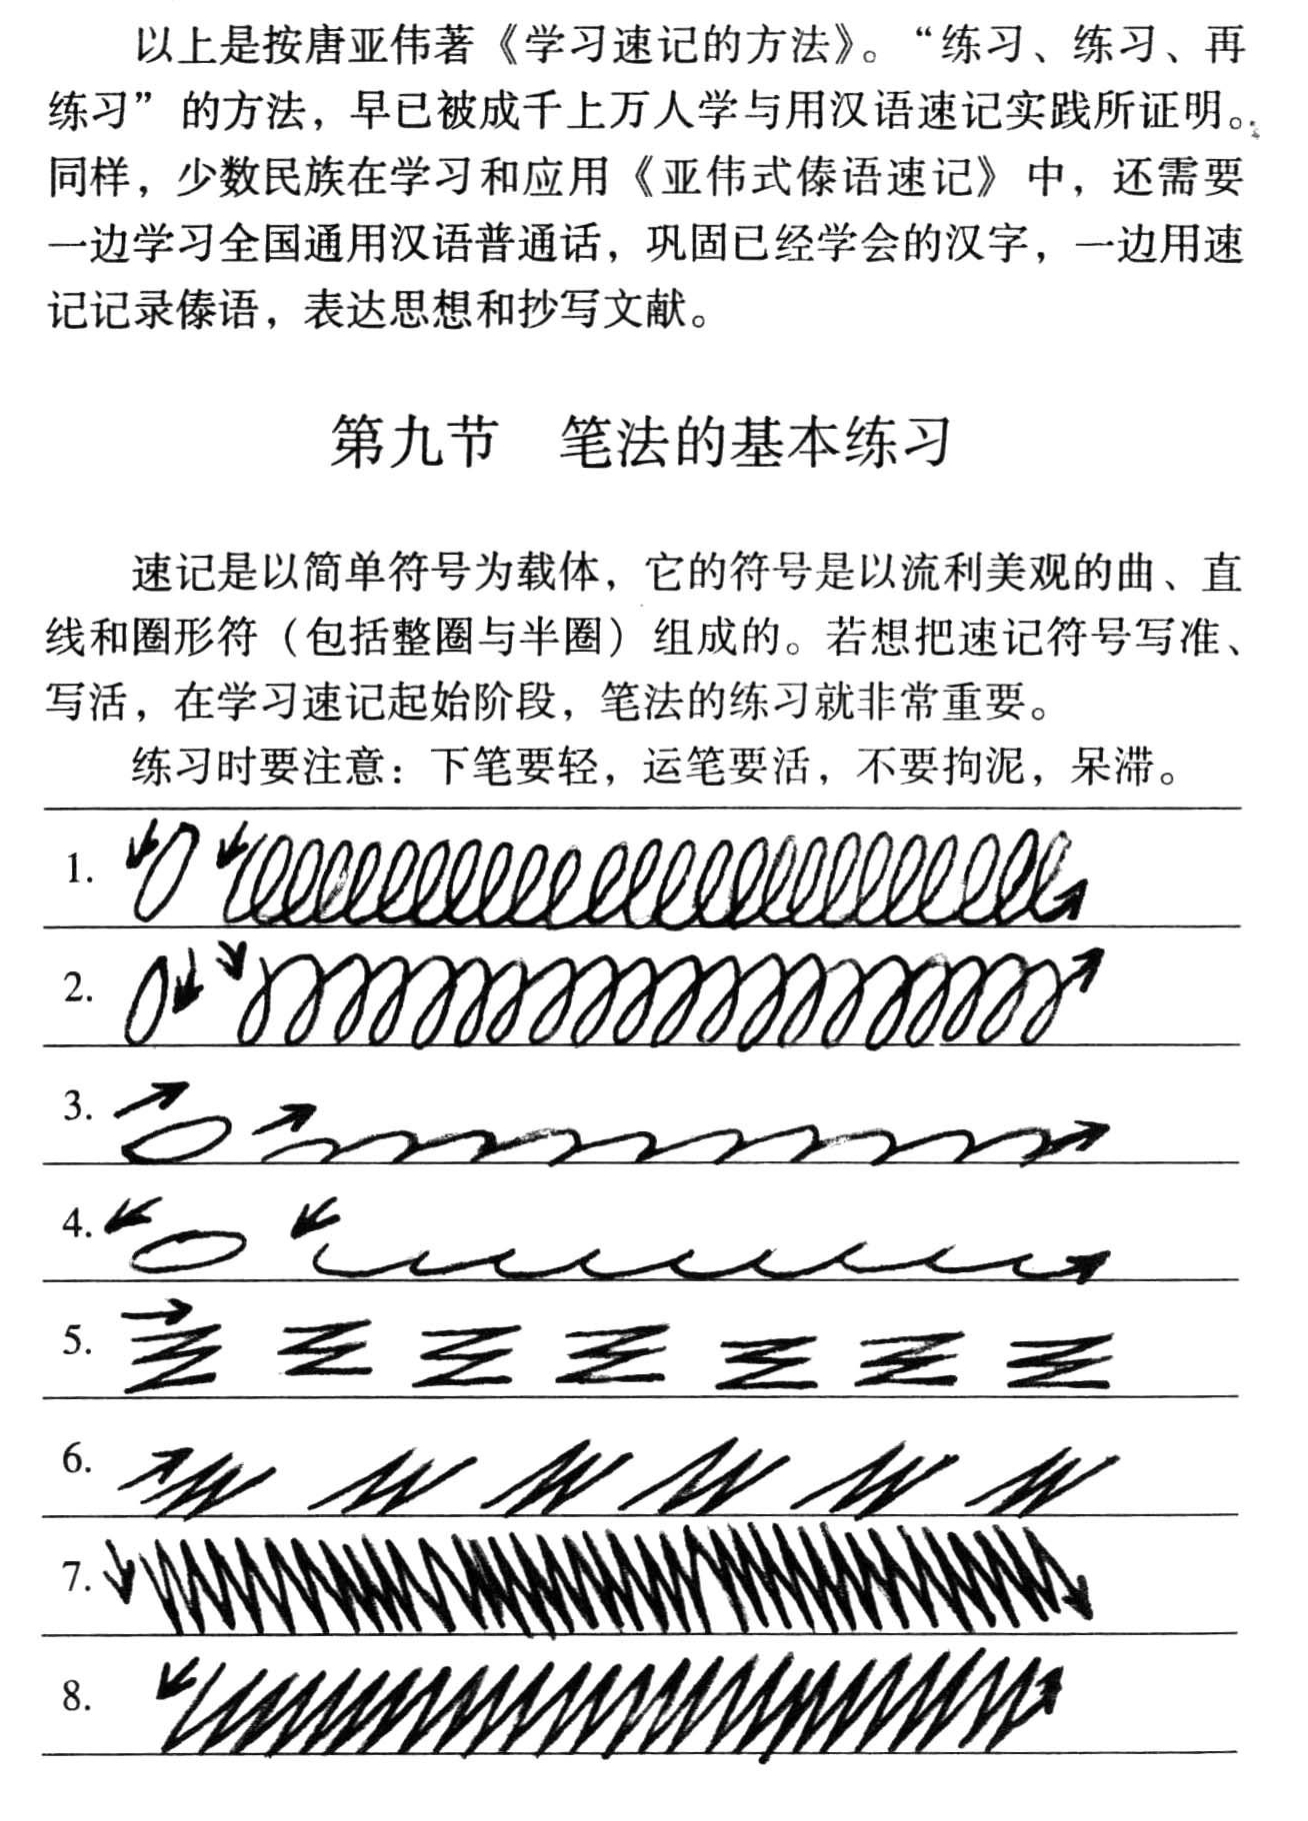 以上是按唐亚伟著《学习速记的方法》。“练习、练习、再
练习”的方法，早已被成千上万人学与用汉语速记实践所证明。
同样，少数民族在学习和应用《亚伟式傣语速记》中，还需要
一边学习全国通用汉语普通话，巩固已经学会的汉字，一边用速
记记录傣语，表达思想和抄写文献。
第九节 笔法的基本练习
速记是以简单符号为载体，它的符号是以流利美观的曲、直
线和圈形符（包括整圈与半圈）组成的。若想把速记符号写准、
写活，在学习速记起始阶段，笔法的练习就非常重要。
练习时要注意：下笔要轻，运笔要活，不要拘泥，呆滞。
1.
2.
3.
4.
5.
6.
7.
8.